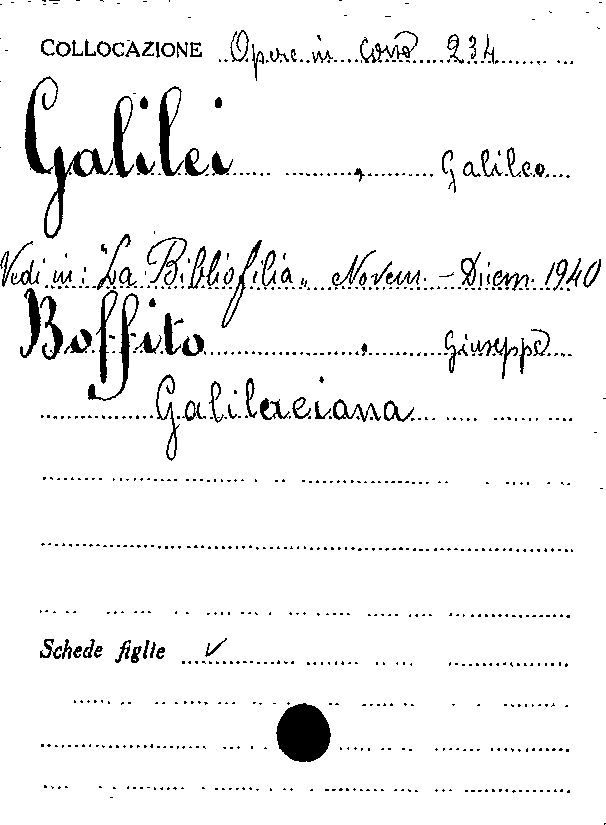 COLLOCAZIONE Opere in corso 234
Galilei , Galileo
Vedi in: "La Bibliofilia" Novem. - Dicem. 1940
Boffito , Giuseppe
Galilaeiana
Schede figlie ✓